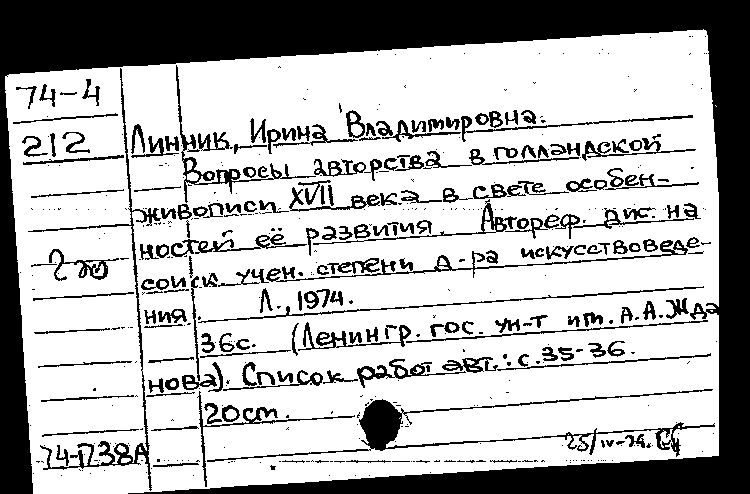 74-4
212 Линник, Ирина Владимировна.
Вопросы авторства в голландской
живописи XVII века в свете особен-
ностей её развития. Автореф. дис. на
соиск. учен. степени д-ра искусствоведе-
ния. Л., 1974.
36с. (Ленингр. гос. ун-т им. А.А. Жда
нова). Список работ авт.: с.35-36.
20cm.
74-П38А.
25/IV-74.